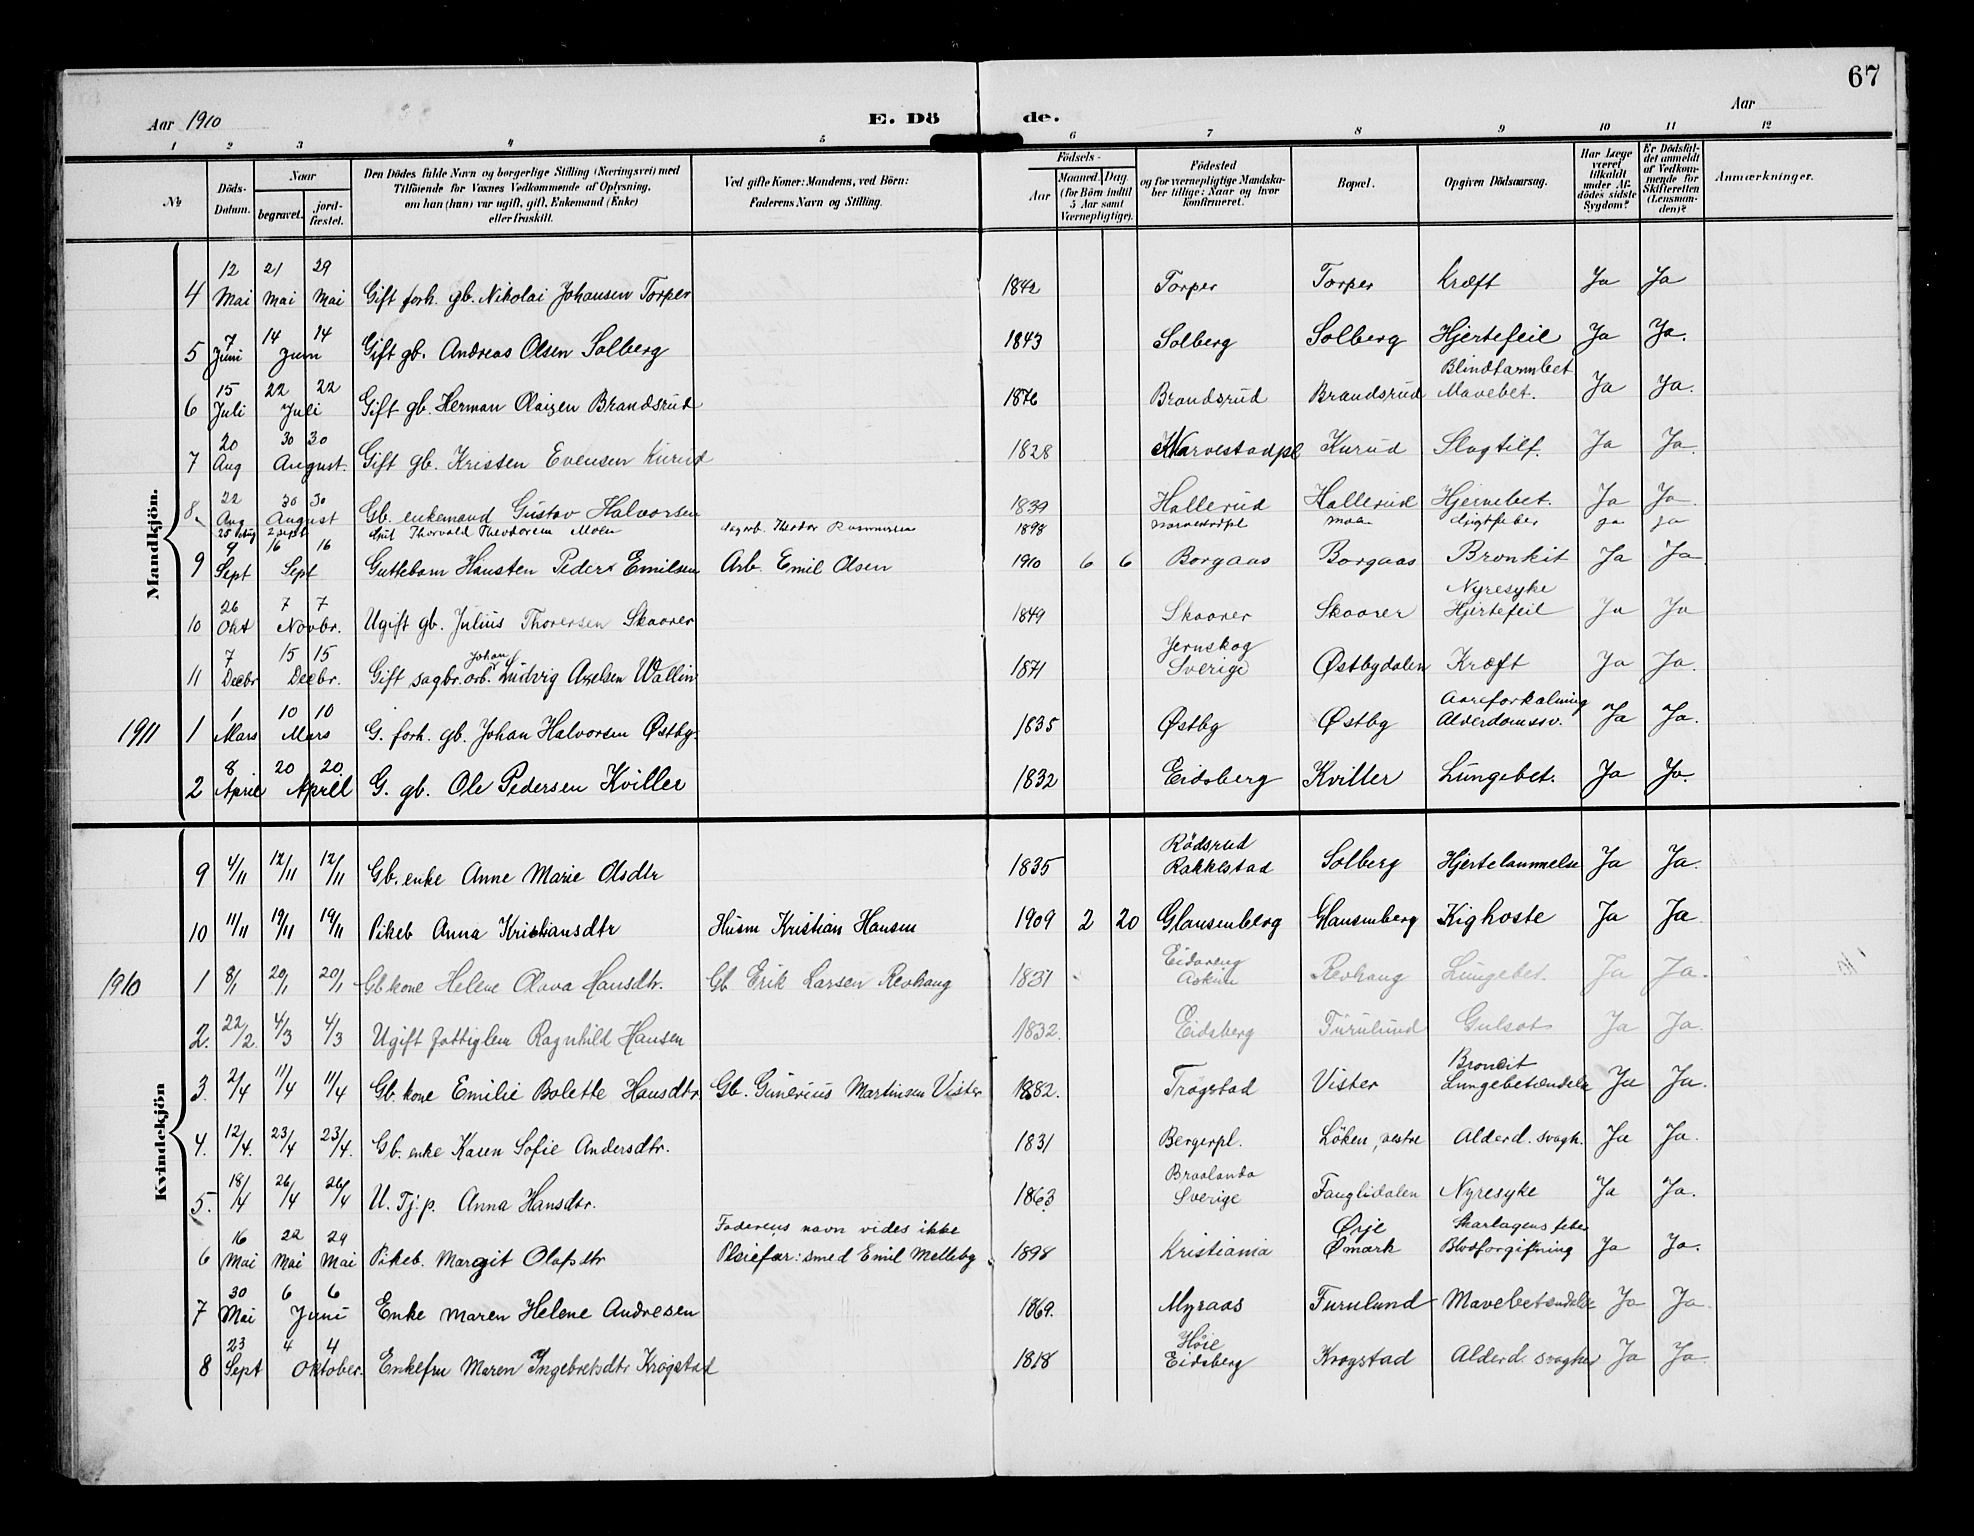 67
Aar 1910 E. Dö de. Aar
1 2 3 4 5 6 7 8 9 10 11 12
No
Döds-Datum.
Naar
begravet.
jord-fæstet.
Den Dödes fulde Navn og borgerlige Stilling (Næringsvei) med
Tilföiende for Voxnes Vedkommende af Oplysning,
om han (hun) var ugift, gift, Enkemand (Enke)
eller fraskilt.
Ved gifte Koner: Mandens, ved Börn:
Faderens Navn og Stilling.
Födsels-
Aar
Maaned. Dag.
(for Börn indtil
5 Aar samt
Værnepligtige).
Födested
og for værnepligtige Mandska-
ber tillige: Naar og hvor
konfirmeret.
Bopæl.
Opgiven Dödsaarsag.
Har Læge
været
tilkaldt
under Af-
dödes sidste
Sygdom?
Er Dödsfal-
det anmeldt
af Vedkom-
mende for
Skifteretten
(Lensman-
den)?
Anmærkninger.
Mandkjön.
12 21 29
4 Mai Mai Mai Gift forh. gb. Nikolai Johansen Torper 1842 Torper Torper Kræft Ja Ja
7 14 14
5 Juni Juni Gift gb. Andreas Olsen Solberg 1843 Solberg Solberg Hjertefeil Ja Ja.
15 22 22 Blindtarmbet
6 Juli Juli Gift gb. Herman Olaisen Brandsrud 1876 Brandsrud Brandsrud Mavebet. Ja Ja.
20 30 30
7 Aug August. Gift gb. Kristen Evensen Kurud 1828 Narvestadpl Kurud Slagtilf. Ja Ja.
22 30 30
8 Aug August Gb. enkemand Gustav Halvorsen 1839 Hallerud Hallerud Hjernebet. Ja Ja
25 Aug 2 Sept Thorvald Theodorsen Moen Theodor Rasmussen 1898 Narvestadpl Moen Ja Ja
9 16 16
9 Sept Sept Guttebarn Hansten Peder Emilsen Arb. Emil Olsen 1910 6 6 Borgaas Borgaas Bronkit Ja Ja
26 7 7 Nyresyke
10 Okt Novbr. Ugift gb. Julius Thoresen Skaarer 1849 Skaarer Skaarer Hjertefeil Ja Ja
7 15 15 Johan Jernskog
11 Decbr Decbr. Gift sagbr. arb. Ludvig Axelsen Wallin 1871 Sverige Østbydalen Kræft Ja Ja.
1 10 10 Aareforkalning
1911 1 Mars Mars G. forh. gb. Johan Halvorsen Østby. 1835 Østby Østby Alderdomssv. Ja Ja.
8 20 20
2 April April G. gb. Ole Pedersen Kviller 1832 Eidsberg Kviller Lungebet. Ja Ja.
Kvindekjön
Rödsrud
9 4/11 12/11 12/11 Gb. enke Anne Marie Olsdtr 1835 Rakkestad Solberg Hjertelammelse Ja Ja.
10 11/11 19/11 19/11 Pikeb Anna Kristiansdtr Husm Kristian Hansen 1909 2 20 Glausenberg Glausenberg Kighoste Ja Ja
1910 1 8/1 20/1 20/1 Gb kone Helene Olava Hansdtr. Gb Erik Larsen Revhaug 1831 Askim Revhaug Lungebet. Ja Ja.
2. 22/2. 4/3 4/3 Ugift fattiglem Ragnhild Hansen 1832. Eidsberg Furulund Gulsot Ja Ja.
Bronkit
3. 2/4 11/4 11/4 Gb. kone Emilie Bolette Hansdtr Gb. Gunerius Martinsen Vister 1882. Trøgstad Vister Lungebetændelse Ja Ja.
4. 12/4. 23/4 23/4. Gb. enke Karen Sofie Andersdtr. 1831 Bergerpl. Löken, vestre Alderd. svagh. Ja Ja.
Braalanda
5. 18/4 26/4 26/4 U. Tj. p. Anna Hansdtr. 1863 Sverige Fauglidalen Nyresyke Ja Ja.
16 22 29 Faderens navn vides ikke Ørje Skarlagensfeber
6 Mai Mai Mai Pikeb. Margit Olafsdtr Pleiefar: smed Emil Melleby 1898 Kristiania Ømark Blodforgiftning Ja Ja.
30 6 6
7 Mai Juni Enke Maren Helene Andresen 1869. Myraas Furulund Mavebetændelse Ja Ja.
23 4 4 Höie
8 Sept Oktober. Enkefru Maren Ingebretsdtr Krogstad 1818 Eidsberg Krogstad Alderd. svaghed Ja Ja.